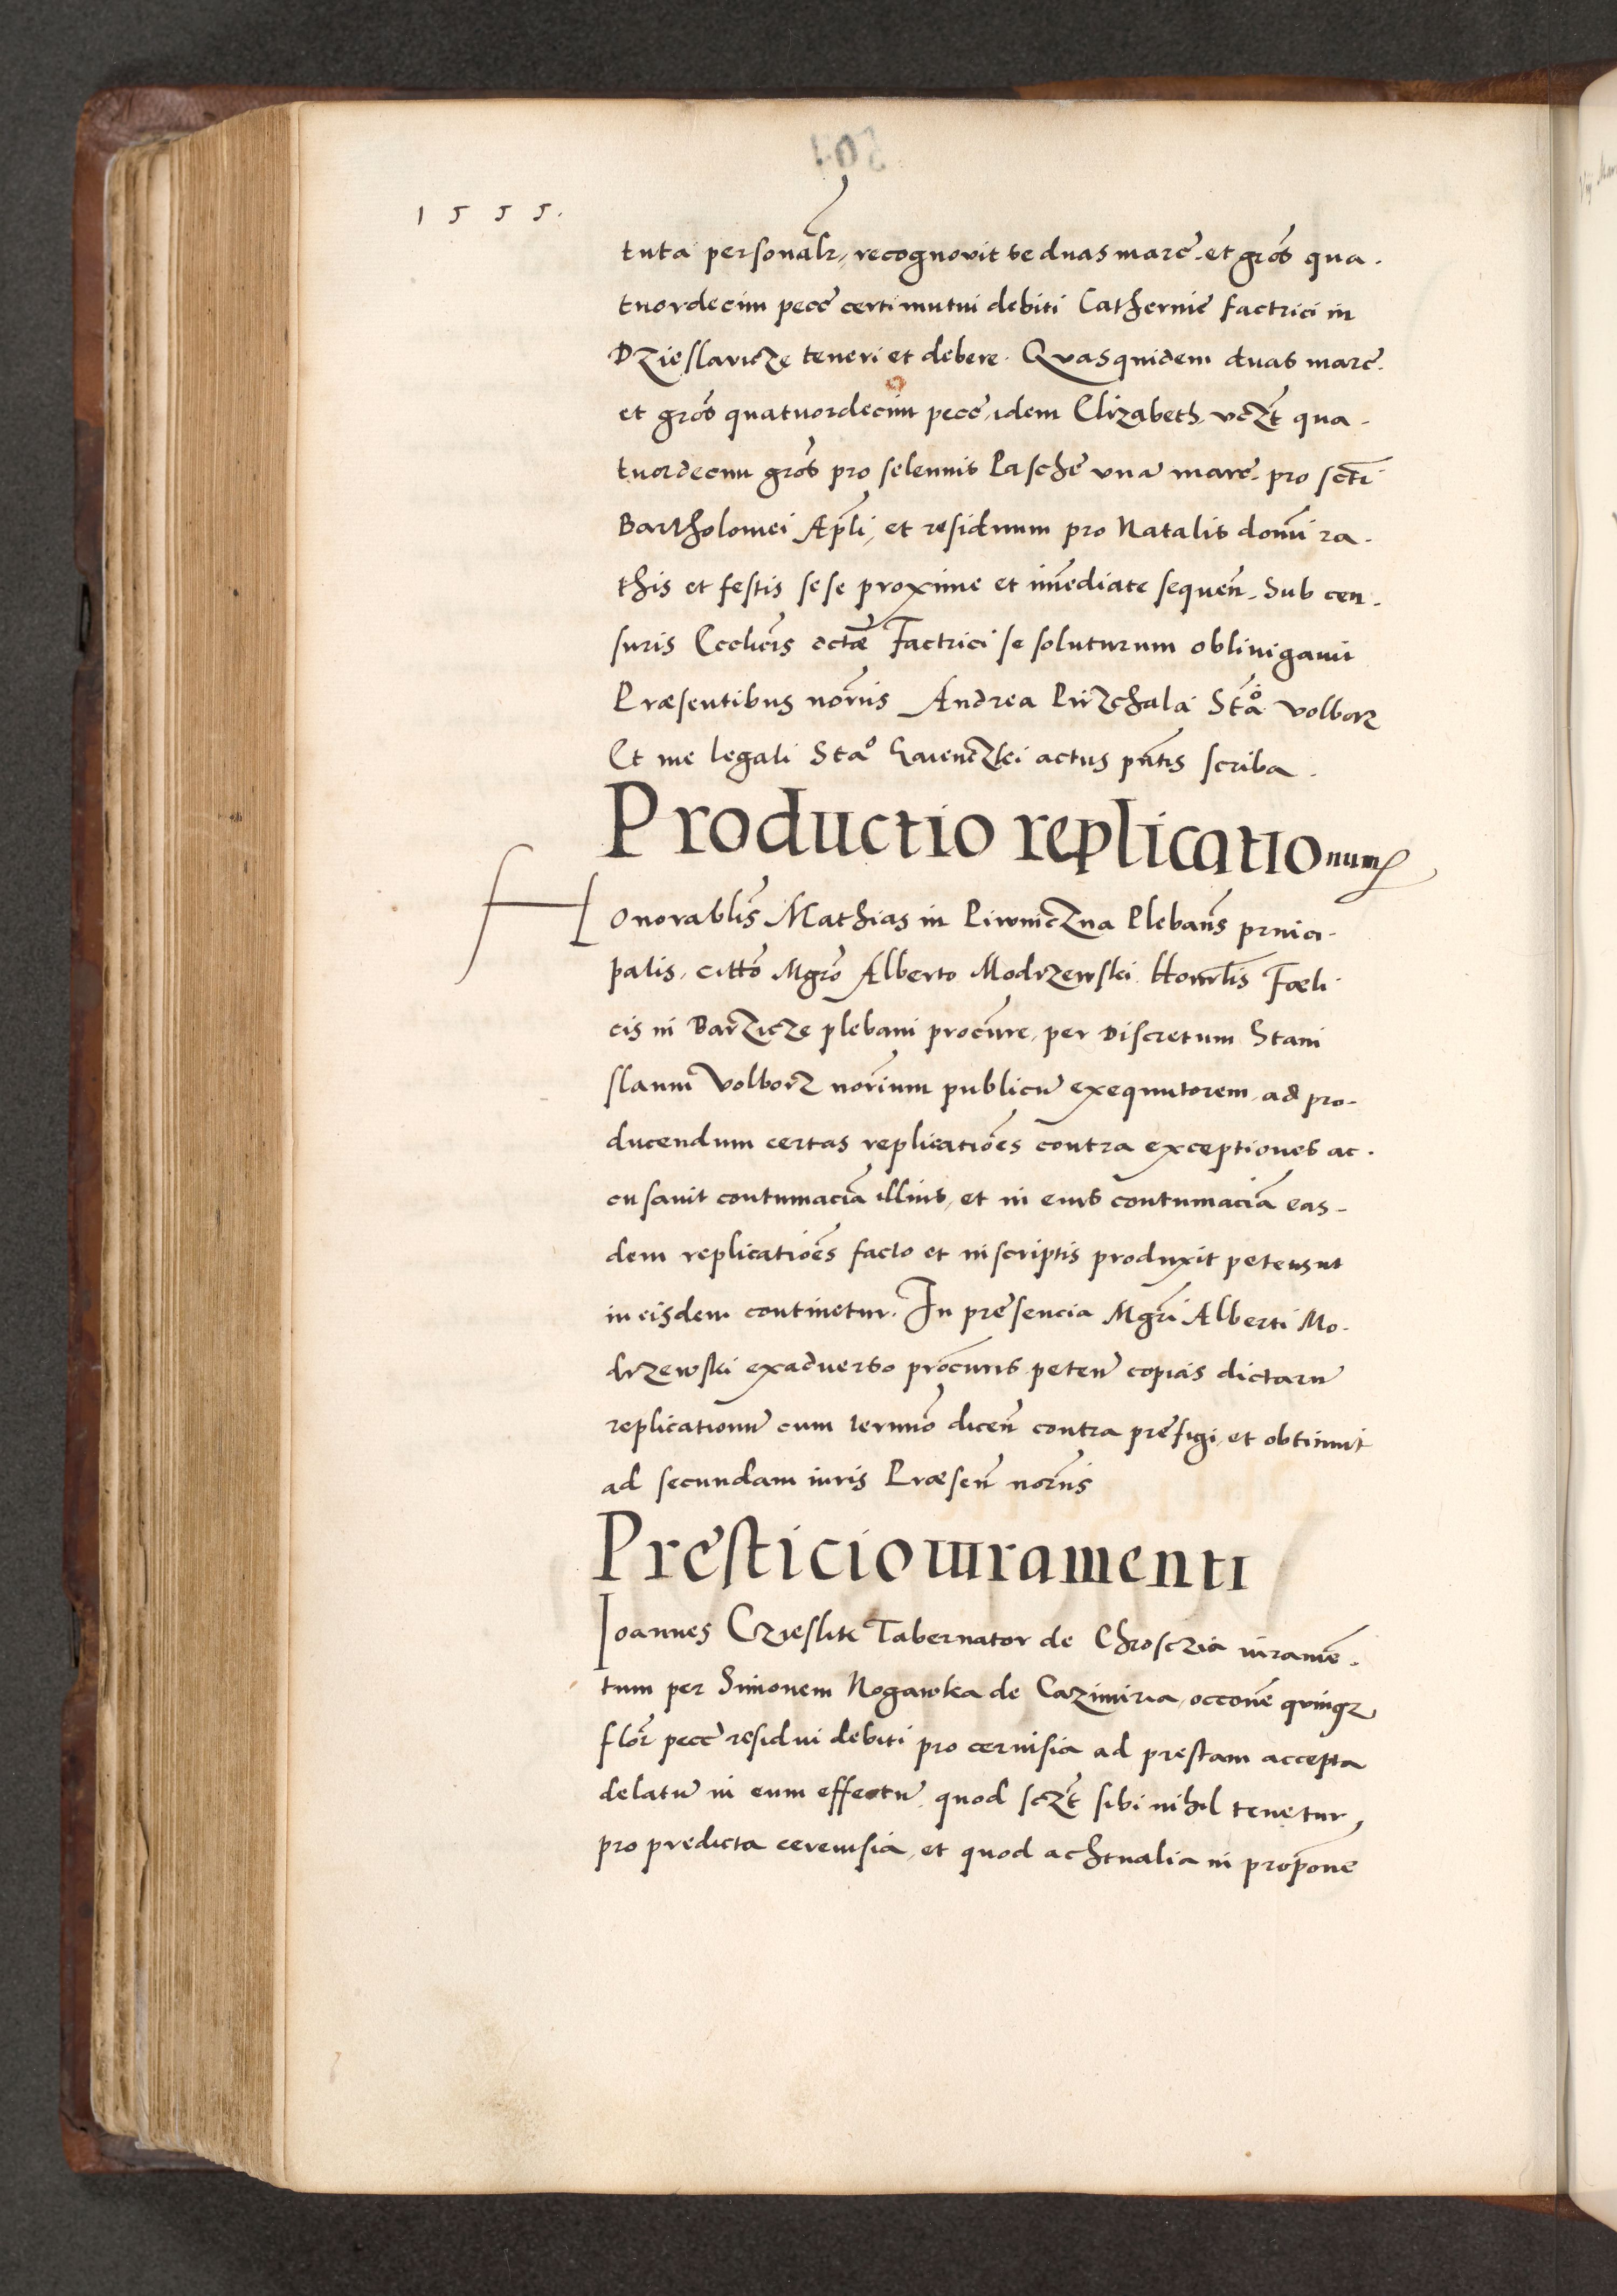 1555.
tuta personalr, recognovit se duas marc. et gros qua.
tuordecim pecc certi mutui debiti Catherine factrici in
Dzieslawicze teneri et debere. Quasquidem duas marc.
et gros quatuordecim pecc, idem Elizabeth vczt qua.
tuordecim gros pro solennis Pasche una marc. pro scti
Bartholomei Apli, et residuum pro Natalis domi ra.
this et festis sese proxime et imediate sequen. Sub cen.
suris Ecclicis dctae Factrici se soluturum oblivigavit
Praesentibus noriis Andrea Pirzchala Sta Volborz
Et me legali Stao actus pntis scriba.
Productio replicationum
Honorablis Mathias in Piwniczna Plebans princi.
palis, citto Mgro Alberto Modrzewski Honrlis Foeli
cis in Barzicze plebani procure, per Discretum Stani
slaum Volborz norium publicu exequutorem, ad pro.
ducendum certas replicatioes contra exceptiones ac.
cusavit contumacia illius, et in eius contumacia eas.
dem replicatioes facto et in scriptis produxit petens ut
in eisdem continetur. In presencia Mgri Alberti Mo.
drzewski exadverso procuris peten copias dictaru
replicationu cum termio dicen contra prefigi, et obtinuit
ad secundam iuris Praesen noriis
Presticio iuramenti
Ioannes Czieslik Tabernator de Chroszcza iurame.
tum per Simonem Nogawka de Cazimiria, occone quinqz
flor pecc residui debiti pro cervisia ad prestam accepta
delatu in eum effectu quod sczt sibi nihil tenetur
pro predicta cerevisia, et quod achtualia in propone